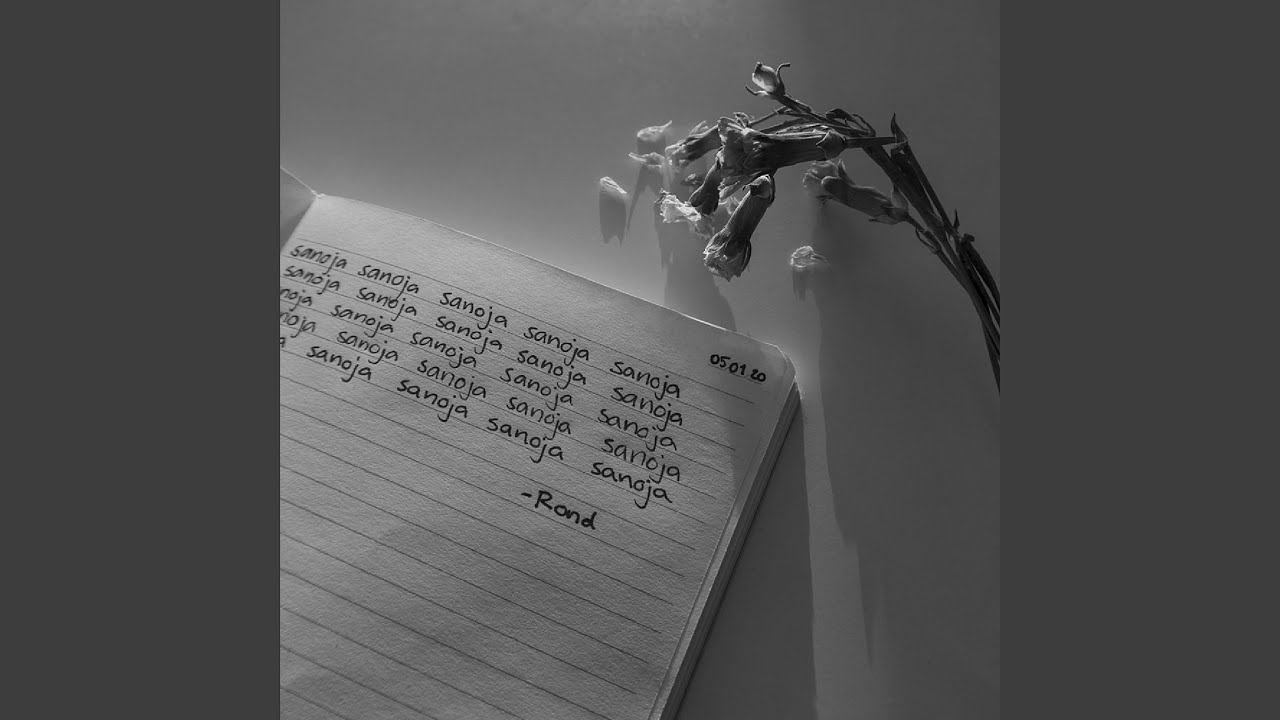 05.01.20
sanoja sanoja sanoja sanoja sanoja
sanoja sanoja sanoja sanoja sanoja
noja sanoja sanoja sanoja sanoja
noja sanoja sanoja sanoja sanoja
a sanoja sanoja sanoja sanoja
-Rond